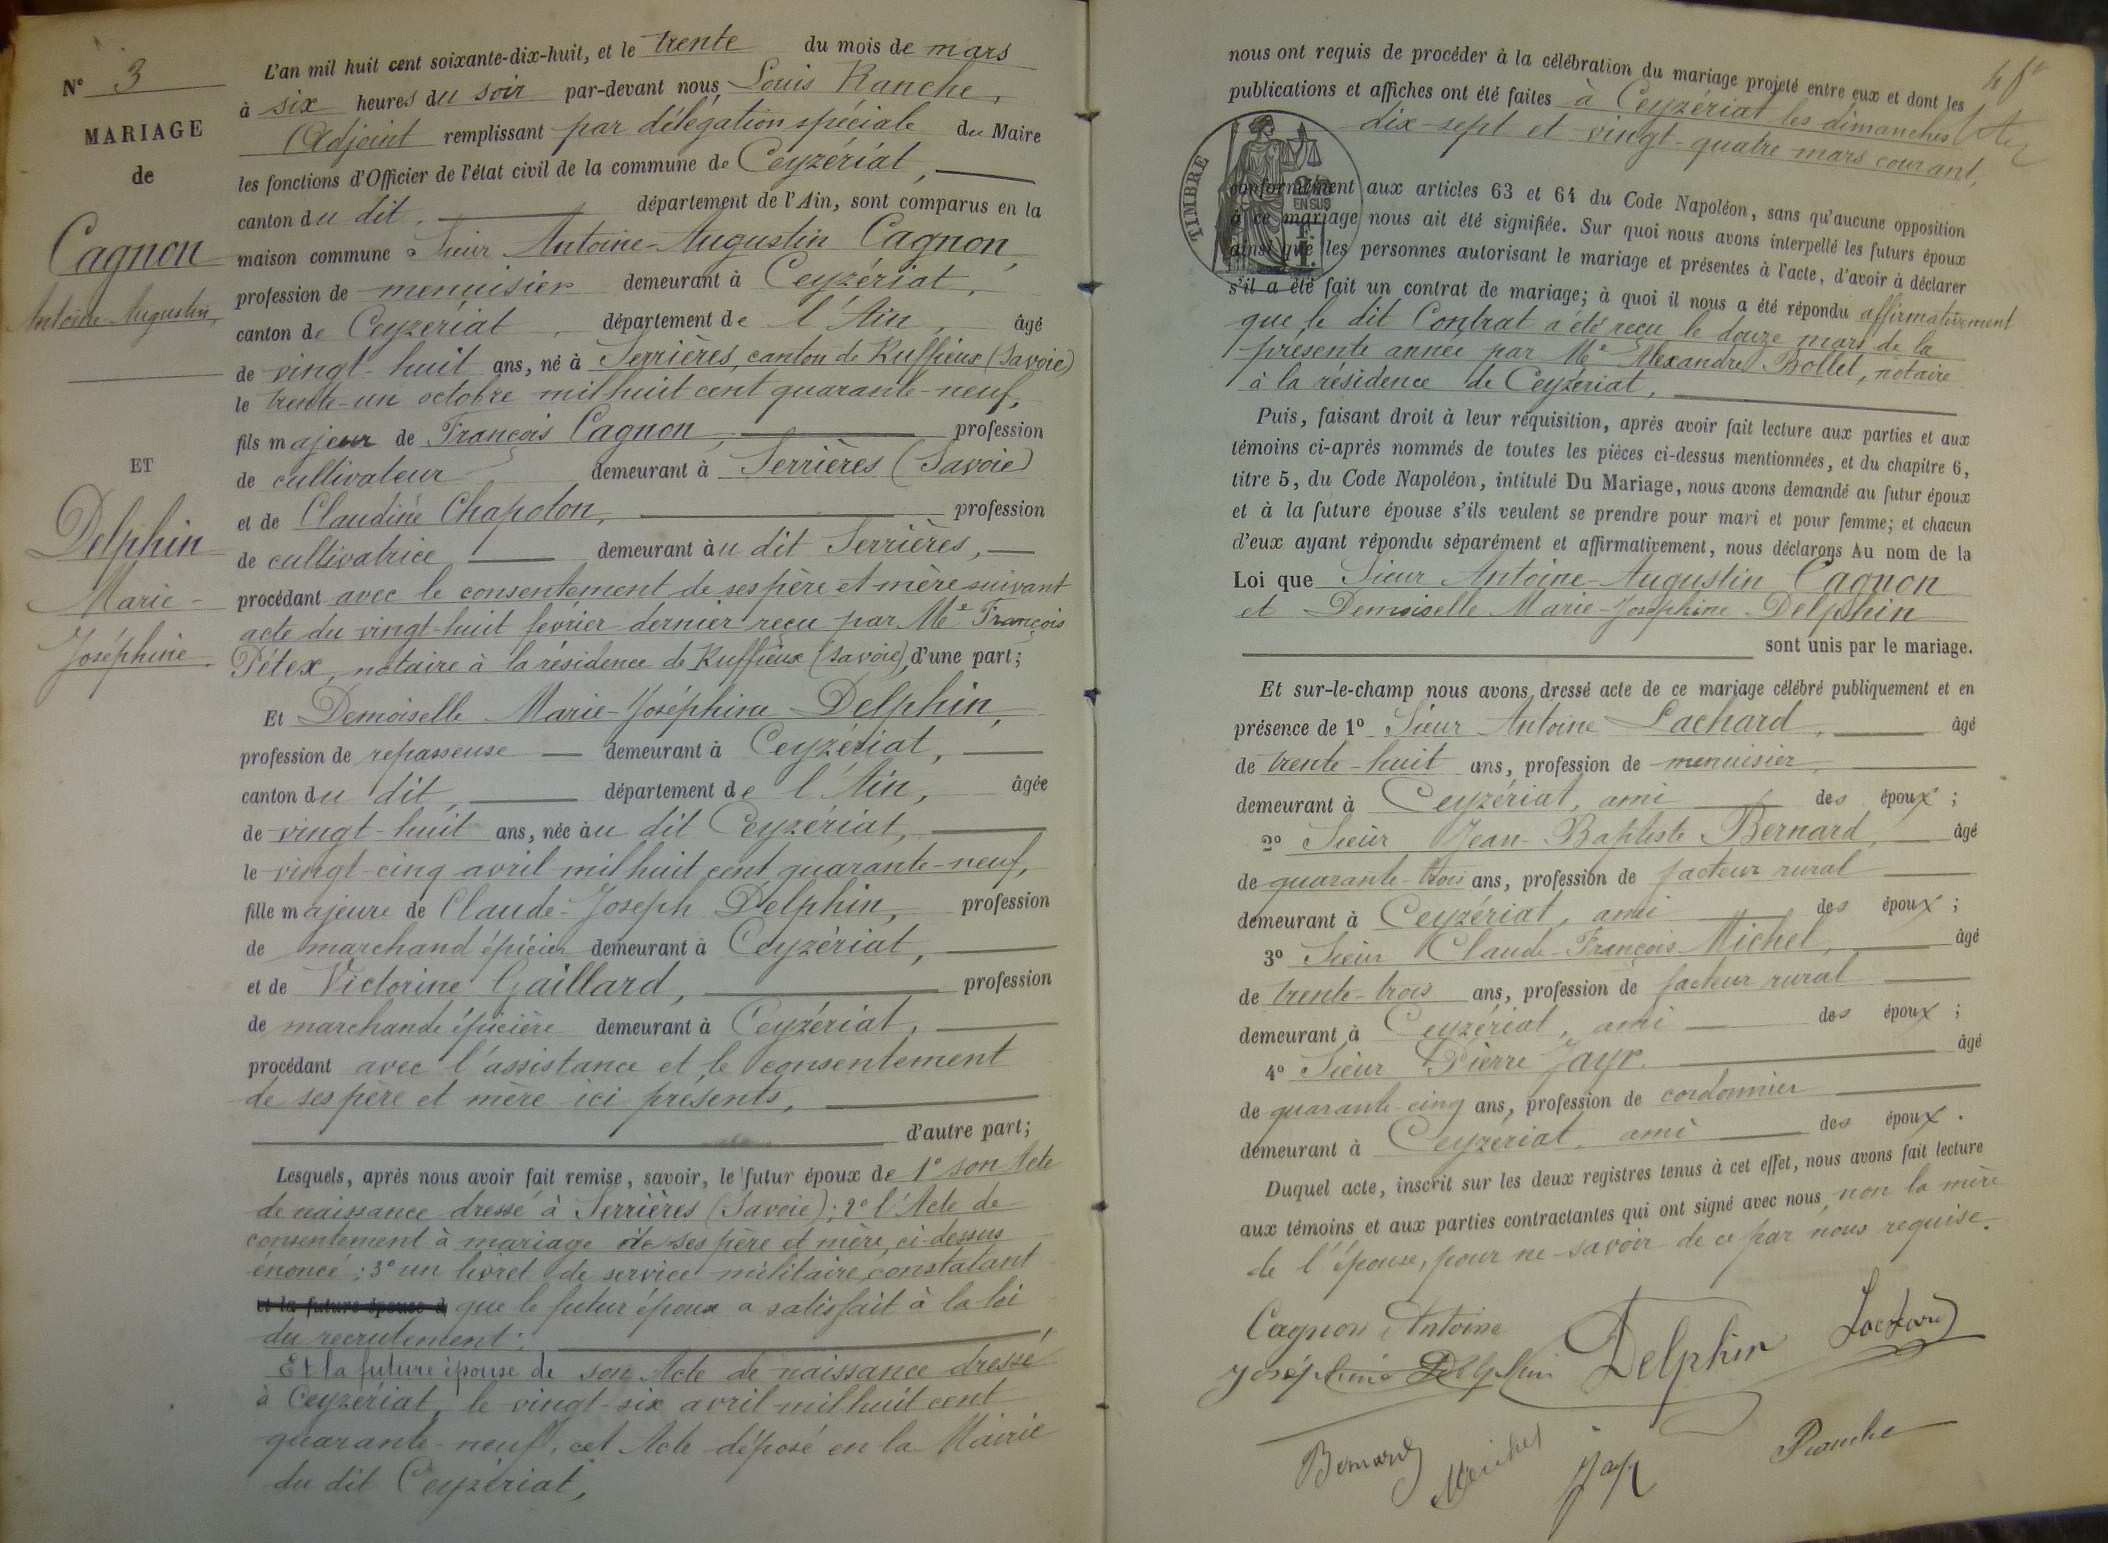 N° 3
MARIAGE
de
Cagnon
Antoine-Augustin,
ET
Delphin
Marie-
Joséphine.
L'an mil huit cent soixante-dix-huit, et le trente du mois de mars
à six heures du soir par-devant nous Louis Ranche,
Adjoint remplissant par délégation spéciale du Maire
les fonctions d'Officier de l'état civil de la commune de Ceyzériat,
canton du dit, département de l'Ain, sont comparus en la
maison commune Sieur Antoine-Augustin Cagnon,
profession de menuisier demeurant à Ceyzériat,
canton de Ceyzériat, département de l'Ain, âgé
de vingt-huit ans, né à Serrières, canton de Ruffieux (Savoie)
le trente-un octobre mil huit cent quarante-neuf,
fils majeur de François Cagnon, profession
de cultivateur demeurant à Serrières (Savoie)
et de Claudine Chapoton, profession
de cultivatrice demeurant au dit Serrières,
procédant avec le consentement de ses père et mère suivant
acte du vingt-huit février dernier reçu par Me François
Pétex, notaire à la résidence de Ruffieux (Savoie), d'une part;
Et Demoiselle Marie-Joséphine Delphin,
profession de repasseuse demeurant à Ceyzériat,
canton du dit, département de l'Ain, âgée
de vingt-huit ans, née au dit Ceyzériat,
le vingt-cinq avril mil huit cent quarante-neuf,
fille majeure de Claude-Joseph Delphin, profession
de marchand épicier demeurant à Ceyzériat,
et de Victorine Gaillard, profession
de marchande épicière demeurant à Ceyzériat,
procédant avec l'assistance et le consentement
de ses père et mère ici présents,
d'autre part;
Lesquels, après nous avoir fait remise, savoir, le futur époux de 1° son Acte
de naissance dressé à Serrières (Savoie); 2° l'Acte de
consentement à mariage de ses père et mère ci-dessus
énoncé; 3° un livret de service militaire constatant
et la future épouse d que le futur époux a satisfait à la loi
du recrutement;
Et la future épouse de son Acte de naissance dressé
à Ceyzériat, le vingt-six avril mil huit cent
quarante-neuf, cet Acte déposé en la Mairie
du dit Ceyzériat,
nous ont requis de procéder à la célébration du mariage projeté entre eux et dont les
publications et affiches ont été faites à Ceyzériat les dimanches
dix-sept et vingt-quatre mars courant,
TIMBRE
EN SUS
conformément aux articles 63 et 64 du Code Napoléon, sans qu'aucune opposition
à ce mariage nous ait été signifiée. Sur quoi nous avons interpellé les futurs époux
ainsi que les personnes autorisant le mariage et présentes à l'acte, d'avoir à déclarer
s'il a été fait un contrat de mariage; à quoi il nous a été répondu affirmativement
que le dit Contrat a été reçu le douze mars de la
présente année par Me Alexandre Bollet, notaire
à la résidence de Ceyzériat,
Puis, faisant droit à leur réquisition, après avoir fait lecture aux parties et aux
témoins ci-après nommés de toutes les pièces ci-dessus mentionnées, et du chapitre 6,
titre 5, du Code Napoléon, intitulé Du Mariage, nous avons demandé au futur époux
et à la future épouse s'ils veulent se prendre pour mari et pour femme; et chacun
d'eux ayant répondu séparément et affirmativement, nous déclarons Au nom de la
Loi que Sieur Antoine-Augustin Cagnon
et Demoiselle Marie-Joséphine Delphin
sont unis par le mariage.
Et sur-le-champ nous avons dressé acte de ce mariage célébré publiquement et en
présence de 1° Sieur Antoine Lachard, âgé
de trente-huit ans, profession de menuisier,
demeurant à Ceyzériat, ami des époux;
2° Sieur Jean-Baptiste Bernard, âgé
de quarante-trois ans, profession de facteur rural
demeurant à Ceyzériat, ami des époux;
3° Sieur Claude-François Michel, âgé
de trente-trois ans, profession de facteur rural
demeurant à Ceyzériat, ami des époux;
4° Sieur Pierre Jayr. âgé
de quarante-cinq ans, profession de cordonnier
demeurant à Ceyzériat, ami des époux.
Duquel acte, inscrit sur les deux registres tenus à cet effet, nous avons fait lecture
aux témoins et aux parties contractantes qui ont signé avec nous, non la mère
de l'épouse, pour ne savoir de ce par nous requise.
Cagnon Antoine
Joséphine Delphin Delphin Lachard
Bernard Michel Jayr Ranche